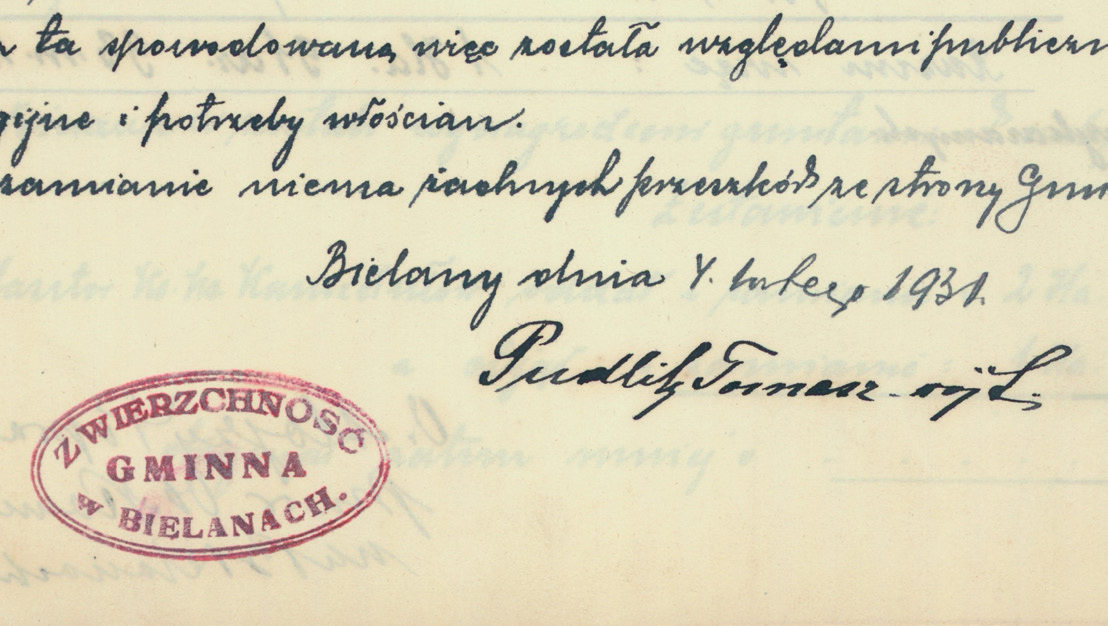 ta spowodowaną więc została względami publiczn
gijne i potrzeby włościan.
zamianie niema żadnych przeszkód ze strony Gmi
Bielany dnia 4. lutego 1931.
Pudlik Tomasz. wójt.
ZWIERZCHNOŚĆ
GMINNA
w BIELANACH.